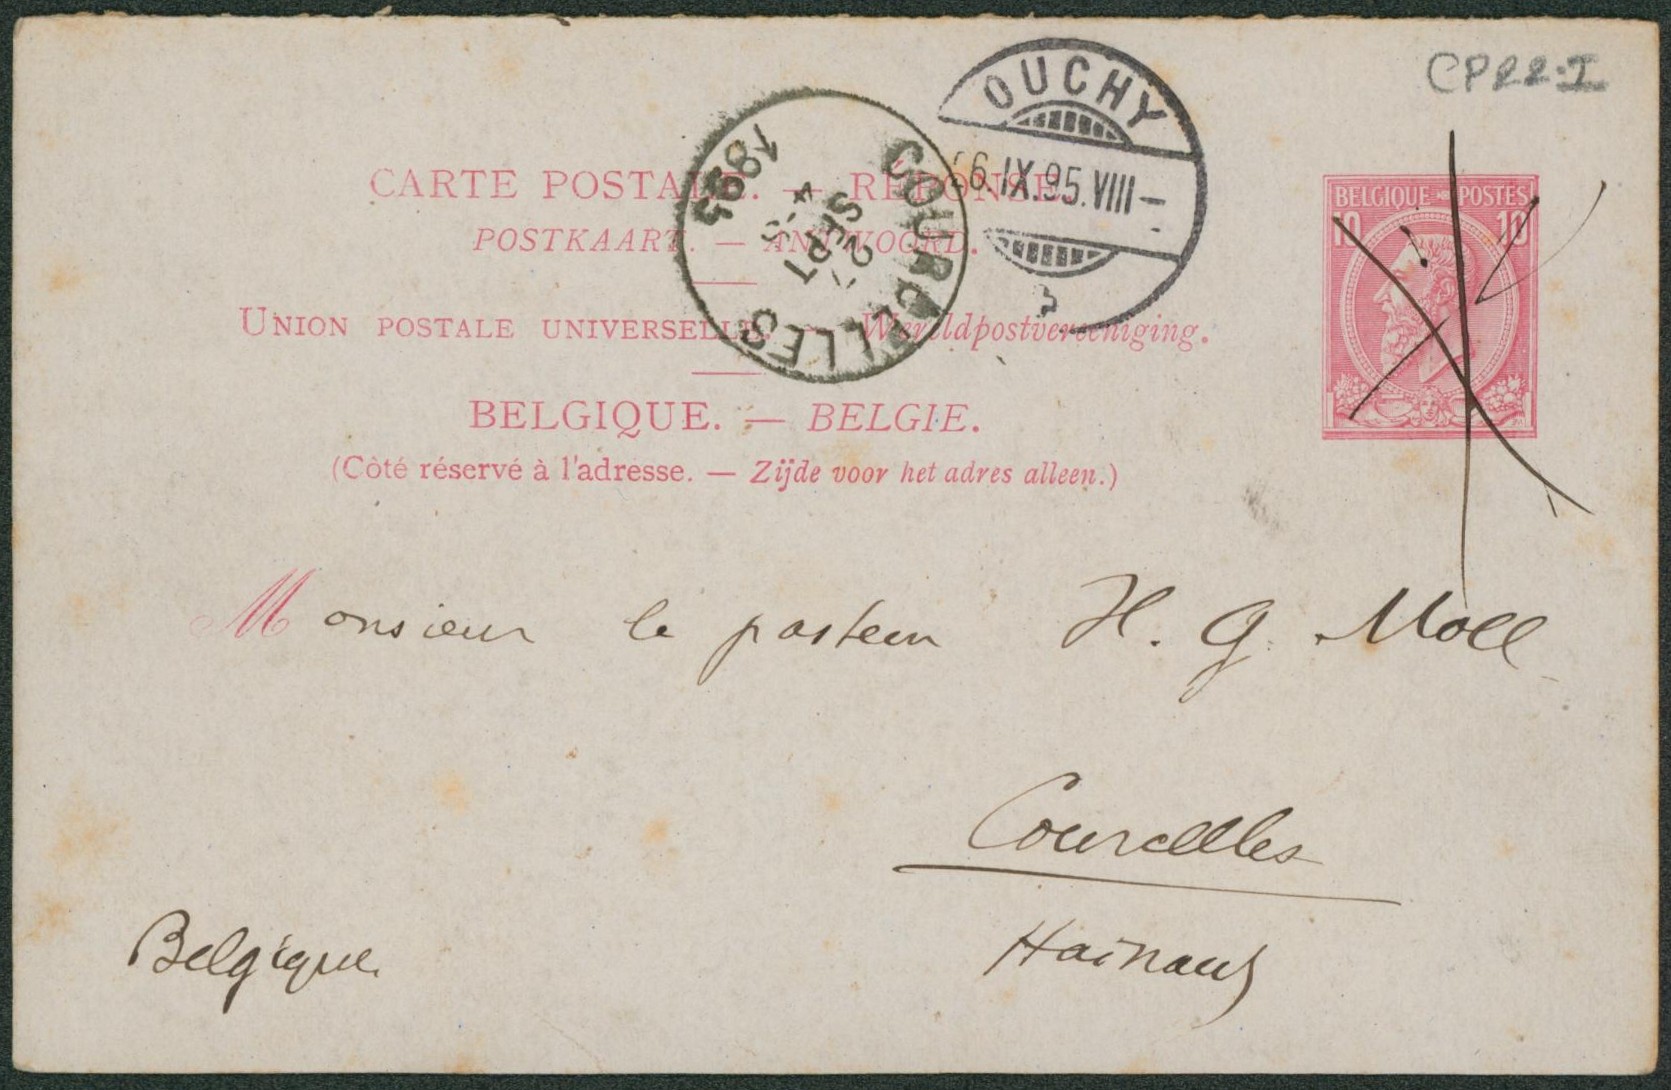 CP22-I
OUCHY
6.IX.95.VIII–
COURCELLES
SEPT
1895
BELGIQUE POSTES
10 10
CARTE POSTALE. — RÉPONSE.
POSTKAART. — ANTWOORD.
UNION POSTALE UNIVERSELLE. — Wereldpostvereeniging.
BELGIQUE. — BELGIE.
(Côté réservé à l'adresse. — Zijde voor het adres alleen.)
Monsieur le pasteur H. G. Moll
Courcelles
Hainaut
Belgique.